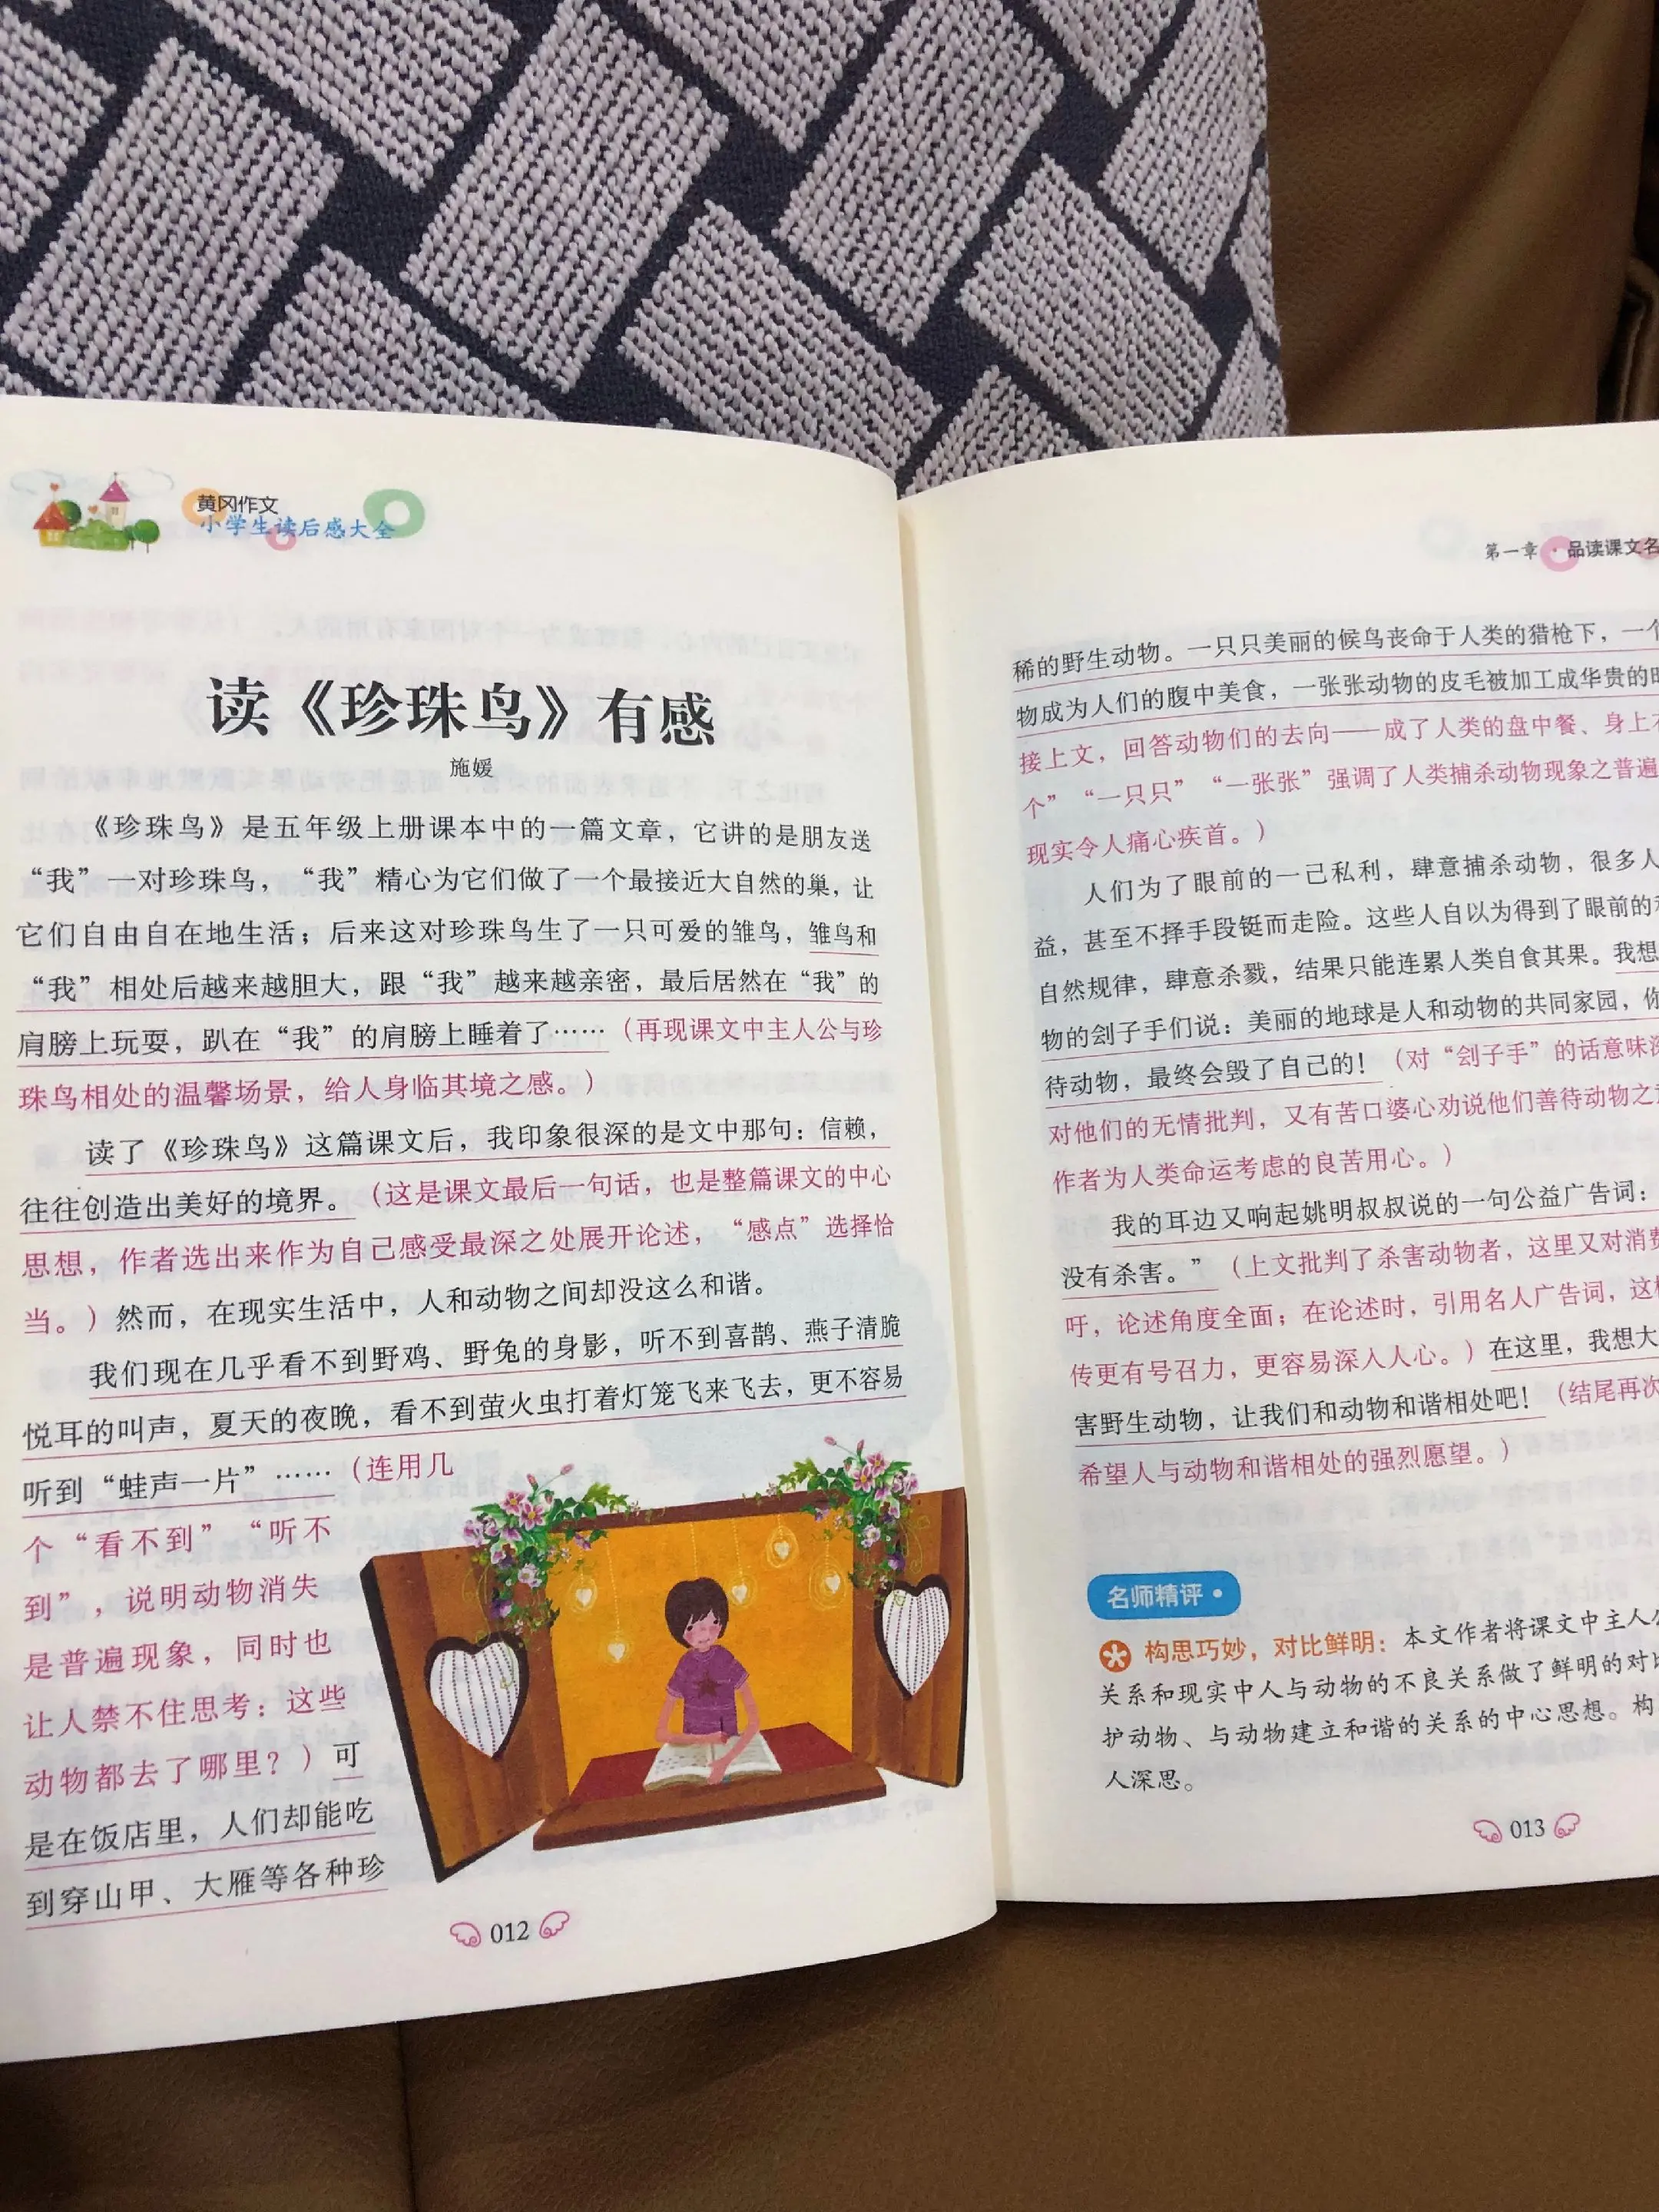 黄冈作文
小学生读后感大全
读《珍珠鸟》有感
施媛
《珍珠鸟》是五年级上册课本中的一篇文章，它讲的是朋友送
“我”一对珍珠鸟，“我”精心为它们做了一个最接近大自然的巢，让
它们自由自在地生活；后来这对珍珠鸟生了一只可爱的雏鸟，雏鸟和
“我”相处后越来越胆大，跟“我”越来越亲密，最后居然在“我”的
肩膀上玩耍，趴在“我”的肩膀上睡着了……（再现课文中主人公与珍
珠鸟相处的温馨场景，给人身临其境之感。）
读了《珍珠鸟》这篇课文后，我印象很深的是文中那句：信赖，
往往创造出美好的境界。（这是课文最后一句话，也是整篇课文的中心
思想，作者选出来作为自己感受最深之处展开论述，“感点”选择恰
当。）然而，在现实生活中，人和动物之间却没这么和谐。
我们现在几乎看不到野鸡、野兔的身影，听不到喜鹊、燕子清脆
悦耳的叫声，夏天的夜晚，看不到萤火虫打着灯笼飞来飞去，更不容易
听到“蛙声一片”……（连用几
个“看不到”“听不
到”，说明动物消失
是普遍现象，同时也
让人禁不住思考：这些
动物都去了哪里？）可
是在饭店里，人们却能吃
到穿山甲、大雁等各种珍
012
第一章·品读课文名
稀的野生动物。一只只美丽的候鸟丧命于人类的猎枪下，一个
物成为人们的腹中美食，一张张动物的皮毛被加工成华贵的
接上文，回答动物们的去向——成了人类的盘中餐、身上
个”“一只只”“一张张”强调了人类捕杀动物现象之普遍
现实令人痛心疾首。）
人们为了眼前的一己私利，肆意捕杀动物，很多人
益，甚至不择手段铤而走险。这些人自以为得到了眼前的
自然规律，肆意杀戮，结果只能连累人类自食其果。我想
物的刽子手们说：美丽的地球是人和动物的共同家园，你
待动物，最终会毁了自己的！（对“刽子手”的话意味深
对他们的无情批判，又有苦口婆心劝说他们善待动物之
作者为人类命运考虑的良苦用心。）
我的耳边又响起姚明叔叔说的一句公益广告词：
没有杀害。”（上文批判了杀害动物者，这里又对消费
吁，论述角度全面；在论述时，引用名人广告词，这样
传更有号召力，更容易深入人心。）在这里，我想大
害野生动物，让我们和动物和谐相处吧！（结尾再次
希望人与动物和谐相处的强烈愿望。）
名师精评
构思巧妙，对比鲜明：本文作者将课文中主人公
关系和现实中人与动物的不良关系做了鲜明的对比
护动物、与动物建立和谐的关系的中心思想。构
人深思。
013